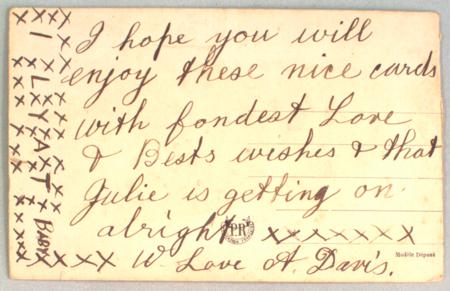 I hope you will
enjoy these nice cards
with fondest Love
& Bests wishes & that
Julie is getting on
alright xxxxxxx
W Love A. Davis.
I L Y A T BABY
PR
Modèle Déposé